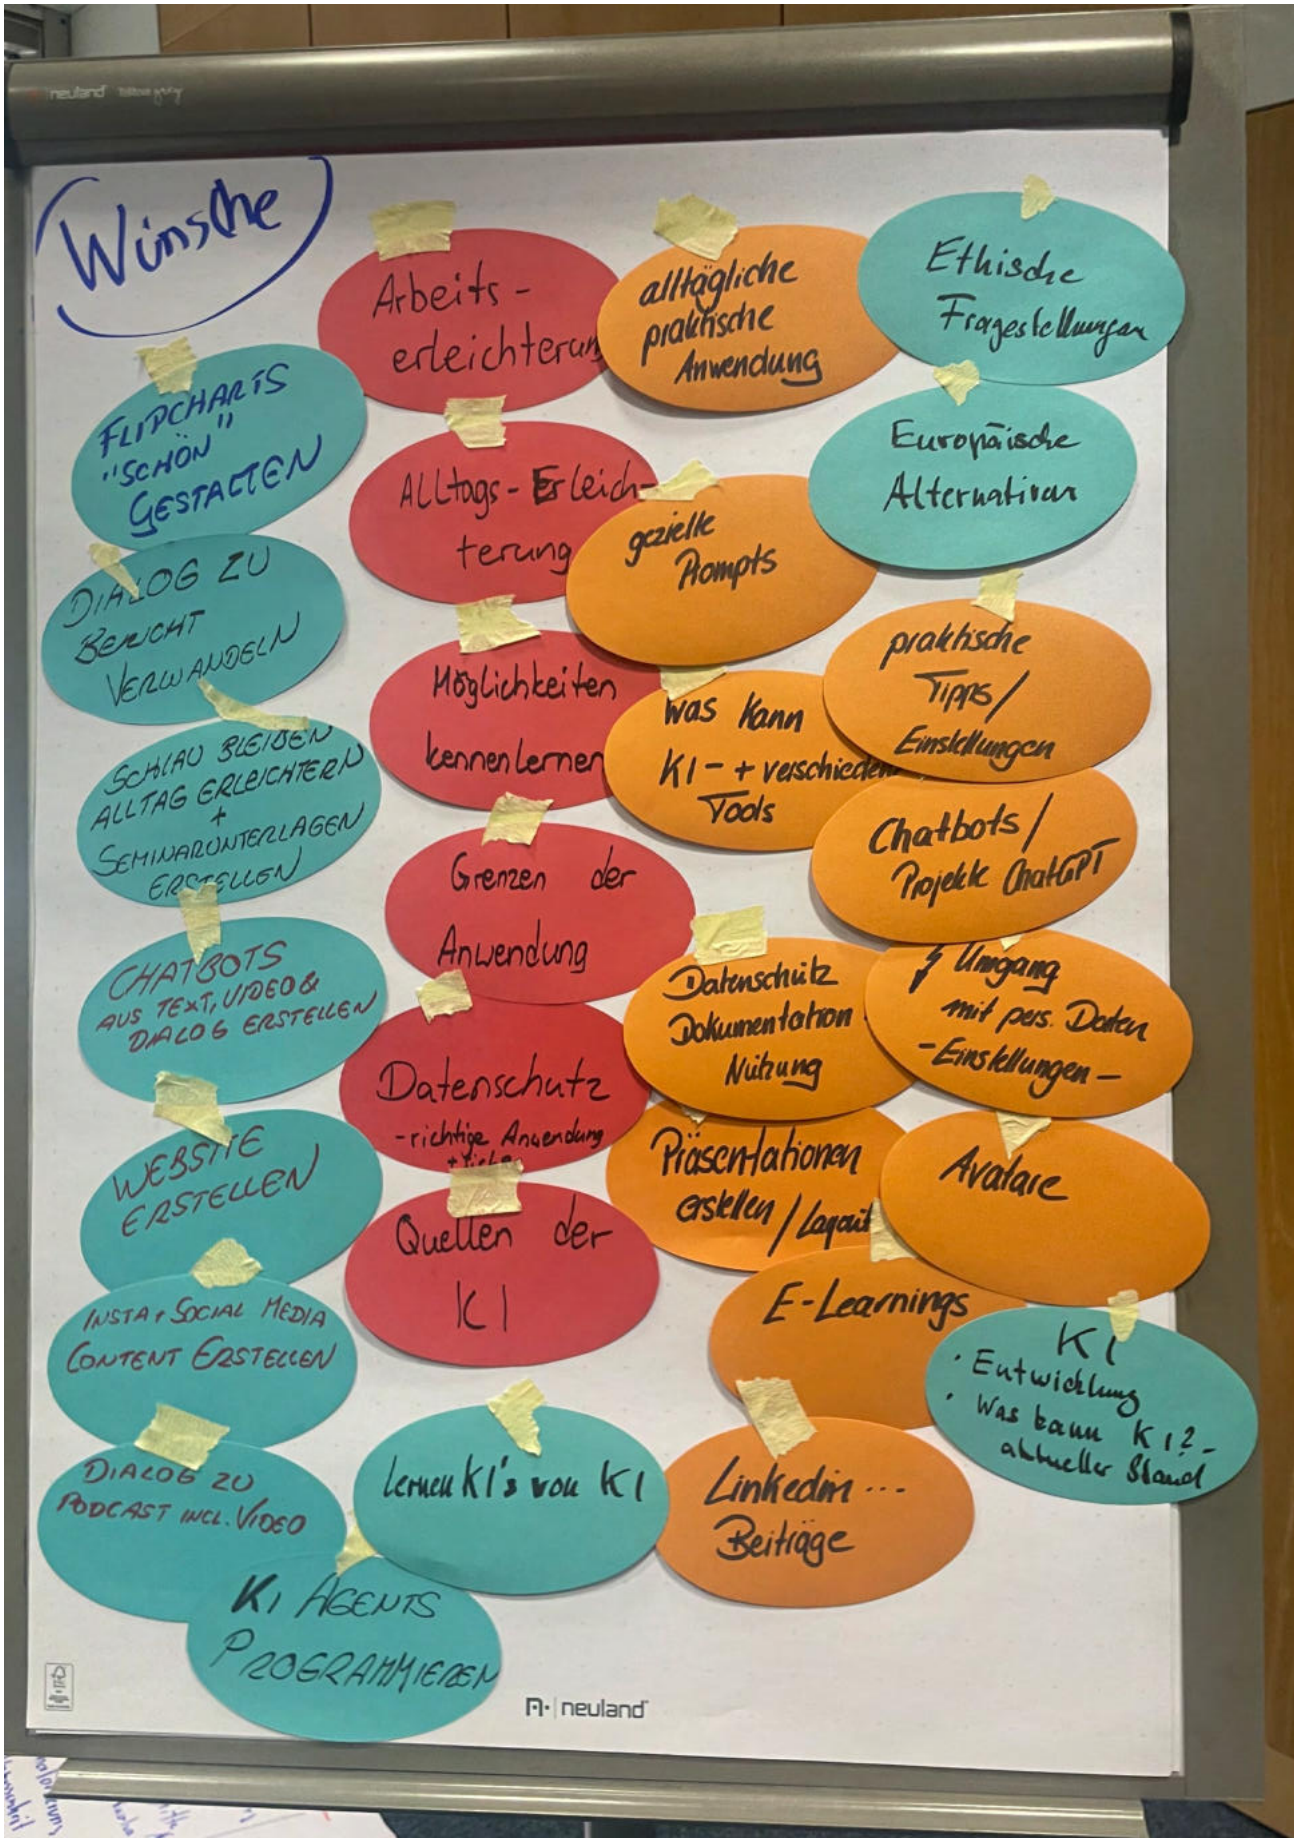 neuland
Wünsche
FLIPCHARTS
"SCHÖN"
GESTALTEN
DIALOG ZU
BERICHT
VERWANDELN
SCHLAU BLEIBEN
ALLTAG ERLEICHTERN
+
SEMINARUNTERLAGEN
ERSTELLEN
CHATBOTS
AUS TEXT, VIDEO &
DIALOG ERSTELLEN
WEBSITE
ERSTELLEN
INSTA + SOCIAL MEDIA
CONTENT ERSTELLEN
DIALOG ZU
PODCAST INCL. VIDEO
KI AGENTS
PROGRAMMIEREN
Arbeits-
erleichterung
Alltags-Erleich-
terung
Möglichkeiten
kennenlernen
Grenzen der
Anwendung
Datenschutz
-richtige Anwendung
Quellen der
KI
lernen KI's von KI
alltägliche
praktische
Anwendung
gezielte
Prompts
was kann
KI - + verschiedene
Tools
Datenschutz
Dokumentation
Nutzung
Präsentationen
erstellen / Layout
E-Learnings
Linkedin ...
Beiträge
Ethische
Fragestellungen
Europäische
Alternativen
praktische
Tipps /
Einstellungen
Chatbots /
Projekte ChatGPT
Umgang
mit pers. Daten
-Einstellungen-
Avatare
KI
· Entwicklung
· Was kann KI? -
aktueller Stand
neuland